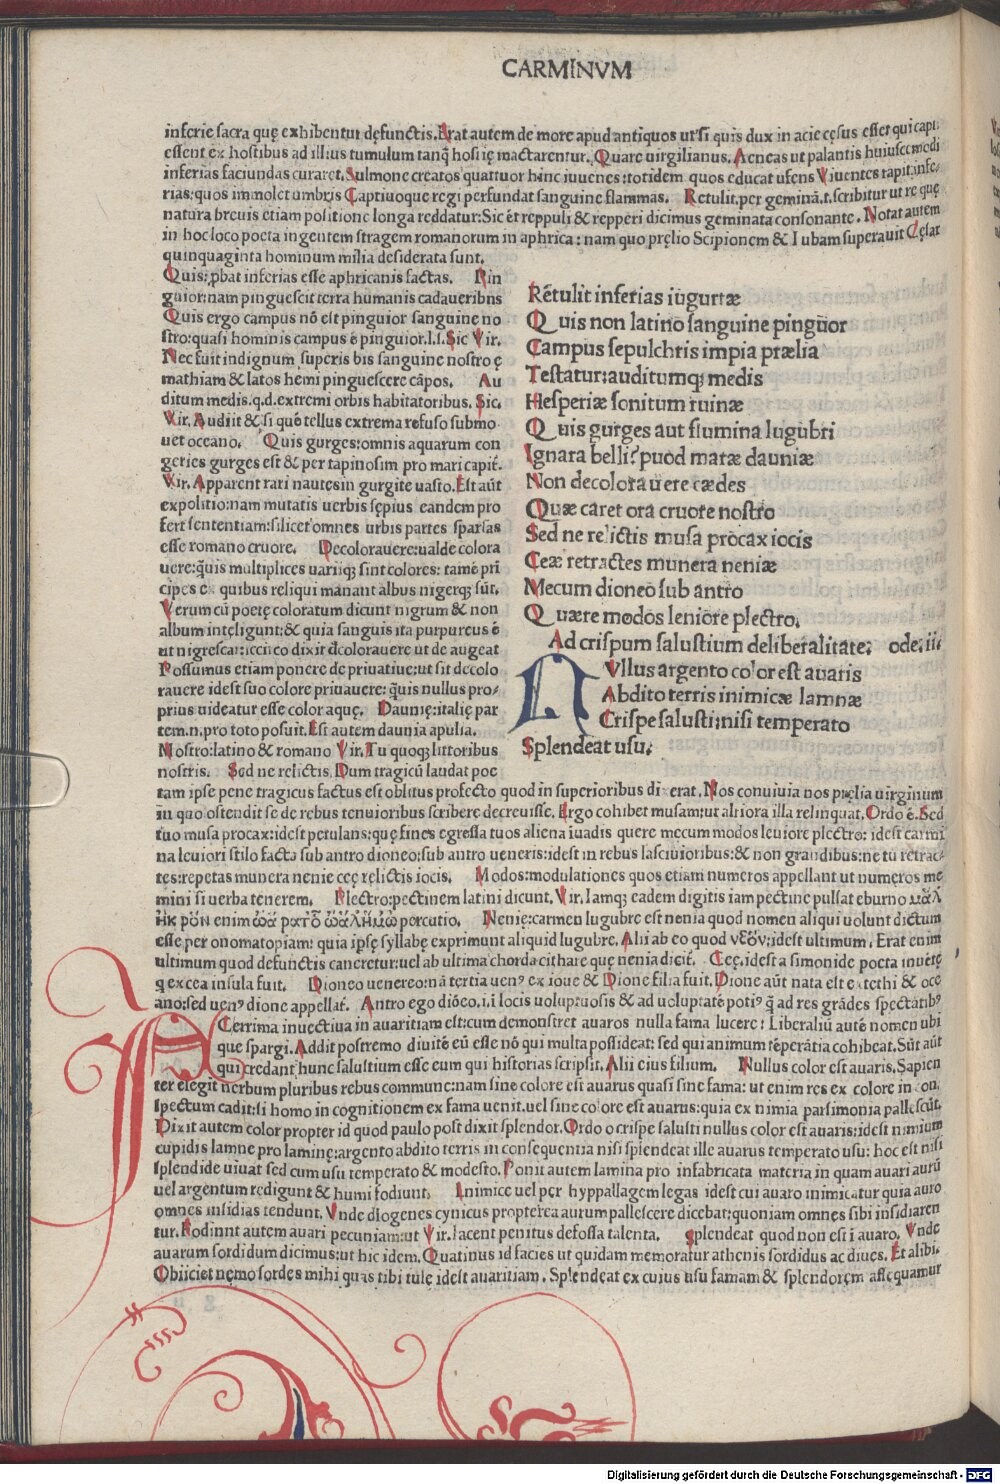 CARMINVM
inferie sacra quę exhibentur dęfunctis. Erat autem de more apud antiquos ut si quis dux in acie cęsus esset qui capti
essent ex hostibus ad illius tumulum tanq̃ hostię mactarentur. Quare uirgilianus. Aeneas ut palantis huiuscemodi
inferias faciundas curaret. Sulmone creatos quattuor hinc iuuenes: totidem quos educat ufens Viuentes rapit. infe-
rias: quos immolet umbris Captiuoque regi perfundat sanguine flammas. Retulit. per geminā .t. scribitur ut re quę
natura breuis etiam positione longa reddatur: Sic et reppuli & repperi dicimus geminata consonante. Notat autem
in hoc loco poeta ingentem stragem romanorum in aphrica: nam quo pręlio Scipionem & Iubam superauit Cęsar
quinquaginta hominum milia desiderata sunt.
Quis: ꝓbat inferias esse aphricanis factas. Pin
guior: nam pinguescit terra humanis cadaueribus
Quis ergo campus nō est pinguior sanguine no
stro: quasi hominis campus ē pinguior. l. s. Sic Vir.
Nec fuit indignum superis bis sanguine nostro ę
mathiam & latos hemi pinguescere cāpos. Au
ditum medis. q.d. extremi orbis habitatoribus. Sic.
Vir. Audiit & si quē tellus extrema refuso submo
uet oceano. Quis gurges: omnis aquarum con
geries gurges est & per tapinosim pro mari capit̃.
Vir. Apparent rari nautęs in gurgite uasto. Est aūt
expolitio: nam mutatis uerbis sępius eandem pro
fert sententiam: silicet omnes urbis partes sparsas
esse romano cruore. Decolorauere: ualde colora
uere: q̃uis multiplices uariiq; sint colores: tamē pri
cipes ex quibus reliqui manant albus nigerq; sūt.
Verum cū poetę coloratum dicunt nigrum & non
album intęligunt: & quia sanguis ita purpureus ē
ut nigrescat: iccirco dixit dcolorauere ut de augeat
Possumus etiam ponere de priuatiue: ut sit decolo
rauere idest suo colore priuauere: q̃uis nullus pro-
prius uideatur esse color aquę. Daunię: italię par
tem .n. pro toto posuit. Est autem daunia apulia.
Nostro: latino & romano Vir. Tu quoq; littoribus
nostris. Sed ne relictis. Dum tragicū laudat poe
Retulit inferias iugurtæ
Quis non latino sanguine pinguior
Campus sepulchris impia prælia
Testatur: auditumq; medis
Hesperiæ sonitum ruinæ
Quis gurges aut flumina lugubri
Ignara belli? quod maræ dauniæ
Non decolorauere cædes
Quæ caret ora cruore nostro
Sed ne relictis musa procax iocis
Ceæ retractes munera neniæ
Mecum dioneo sub antro
Quære modos leniore plectro.
Ad crispum salustium deliberalitate: ode. iii
NVllus argento color est auaris
Abdito terris inimicæ lamnæ
Crispe salusti: nisi temperato
Splendeat usu.
tam ipse pene tragicus factus est oblitus profecto quod in superioribus dixerat. Nos conuiuia nos pręlia uirginum
in quo ostendit se de rebus tenuioribus scribere decreuisse. Ergo cohibet musam: ut altiora illa relinquat. Ordo ē. Sed
tuo musa procax: idest petulans: quę fines egressa tuos aliena iuadis quere mecum modos leuiore plectro: idest carmi
na leuiori stilo facta sub antro dioneo: sub antro ueneris: idest in rebus lasciuioribus: & non grandibus: ne tu retrac-
tes: repetas munera nenie ceę relictis iocis. Modos: modulationes quos etiam numeros appellant ut numeros me
mini si uerba tenerem. Plectro: pectinem latini dicunt. Vir. Iamq; eadem digitis iam pectine pulsat eburno
enim percutio. Nenię: carmen lugubre est nenia quod nomen aliqui uolunt dictum
esse per onomatopiam: quia ipsę syllabę exprimunt aliquid lugubre. Alii ab eo quod νεόν: idest ultimum. Erat enim
ultimum quod defunctis caneretur: uel ab ultima chorda citharę que nenia dicit̃. Ceę. idest a simonide poeta inuētę
q ex cea insula fuit. Dioneo uenereo: nā tertia uenꝰ ex ioue & Dione filia fuit. Dione aūt nata est e tethi & oce
ano: sed uenꝰ dione appellat̃. Antro ego diōeo. i. i locis uoluptuosis & ad uoluptatē potiꝰ q̃ ad res grādes spectātibꝰ
ACerrima inuectiua in auaritiam est: cum demonstret auaros nulla fama lucere: Liberaliū autē nomen ubi
que spargi. Addit postremo diuitē eū esse nō qui multa possideat: sed qui animum tēperātia cohibeat. Sūt aūt
qui credant hunc salustium esse eum qui historias scripsit. Alii eius filium. Nullus color est auaris. Sapien
ter elegit uerbum pluribus rebus commune: nam sine colore est auarus quasi sine fama: ut enim res ex colore in con
spectum cadit: si homo in cognitionem ex fama uenit. uel sine colore est auarus: quia ex nimia parsimonia pallescūt.
Dixit autem color propter id quod paulo post dixit splendor. Ordo o crispe salusti nullus color est auaris: idest nimium
cupidis lamne pro laminę: argento abdito terris in consequentia nisi splendeat ille auarus temperato usu: hoc est nisi
splendide uiuat sed cum usu temperato & modesto. Ponit autem lamina pro infabricata materia in quam auari aurū
uel argentum redigunt & humi fodiunt. Inimice uel per hyppallagem legas idest cui auaro inimicatur quia auro
omnes insidias tendunt. Vnde diogenes cynicus propterea aurum pallescere dicebat: quoniam omnes sibi insidiaren
tur. Fodinnt autem auari pecuniam: ut Vir. Iacent penitus defossa talenta. Splendeat quod non est i auaro. Vnde
auarum sordidum dicimus: ut hic idem. Quatinus id facies ut quidam memoratur athenis sordidus ac diues. Et alibi.
Obiiciet nęmo sordes mihi quas tibi tulę idest auaritiam. Splendeat ex cuius usu famam & splendorem assequamur
Digitalisierung gefördert durch die Deutsche Forschungsgemeinschaft - DFG